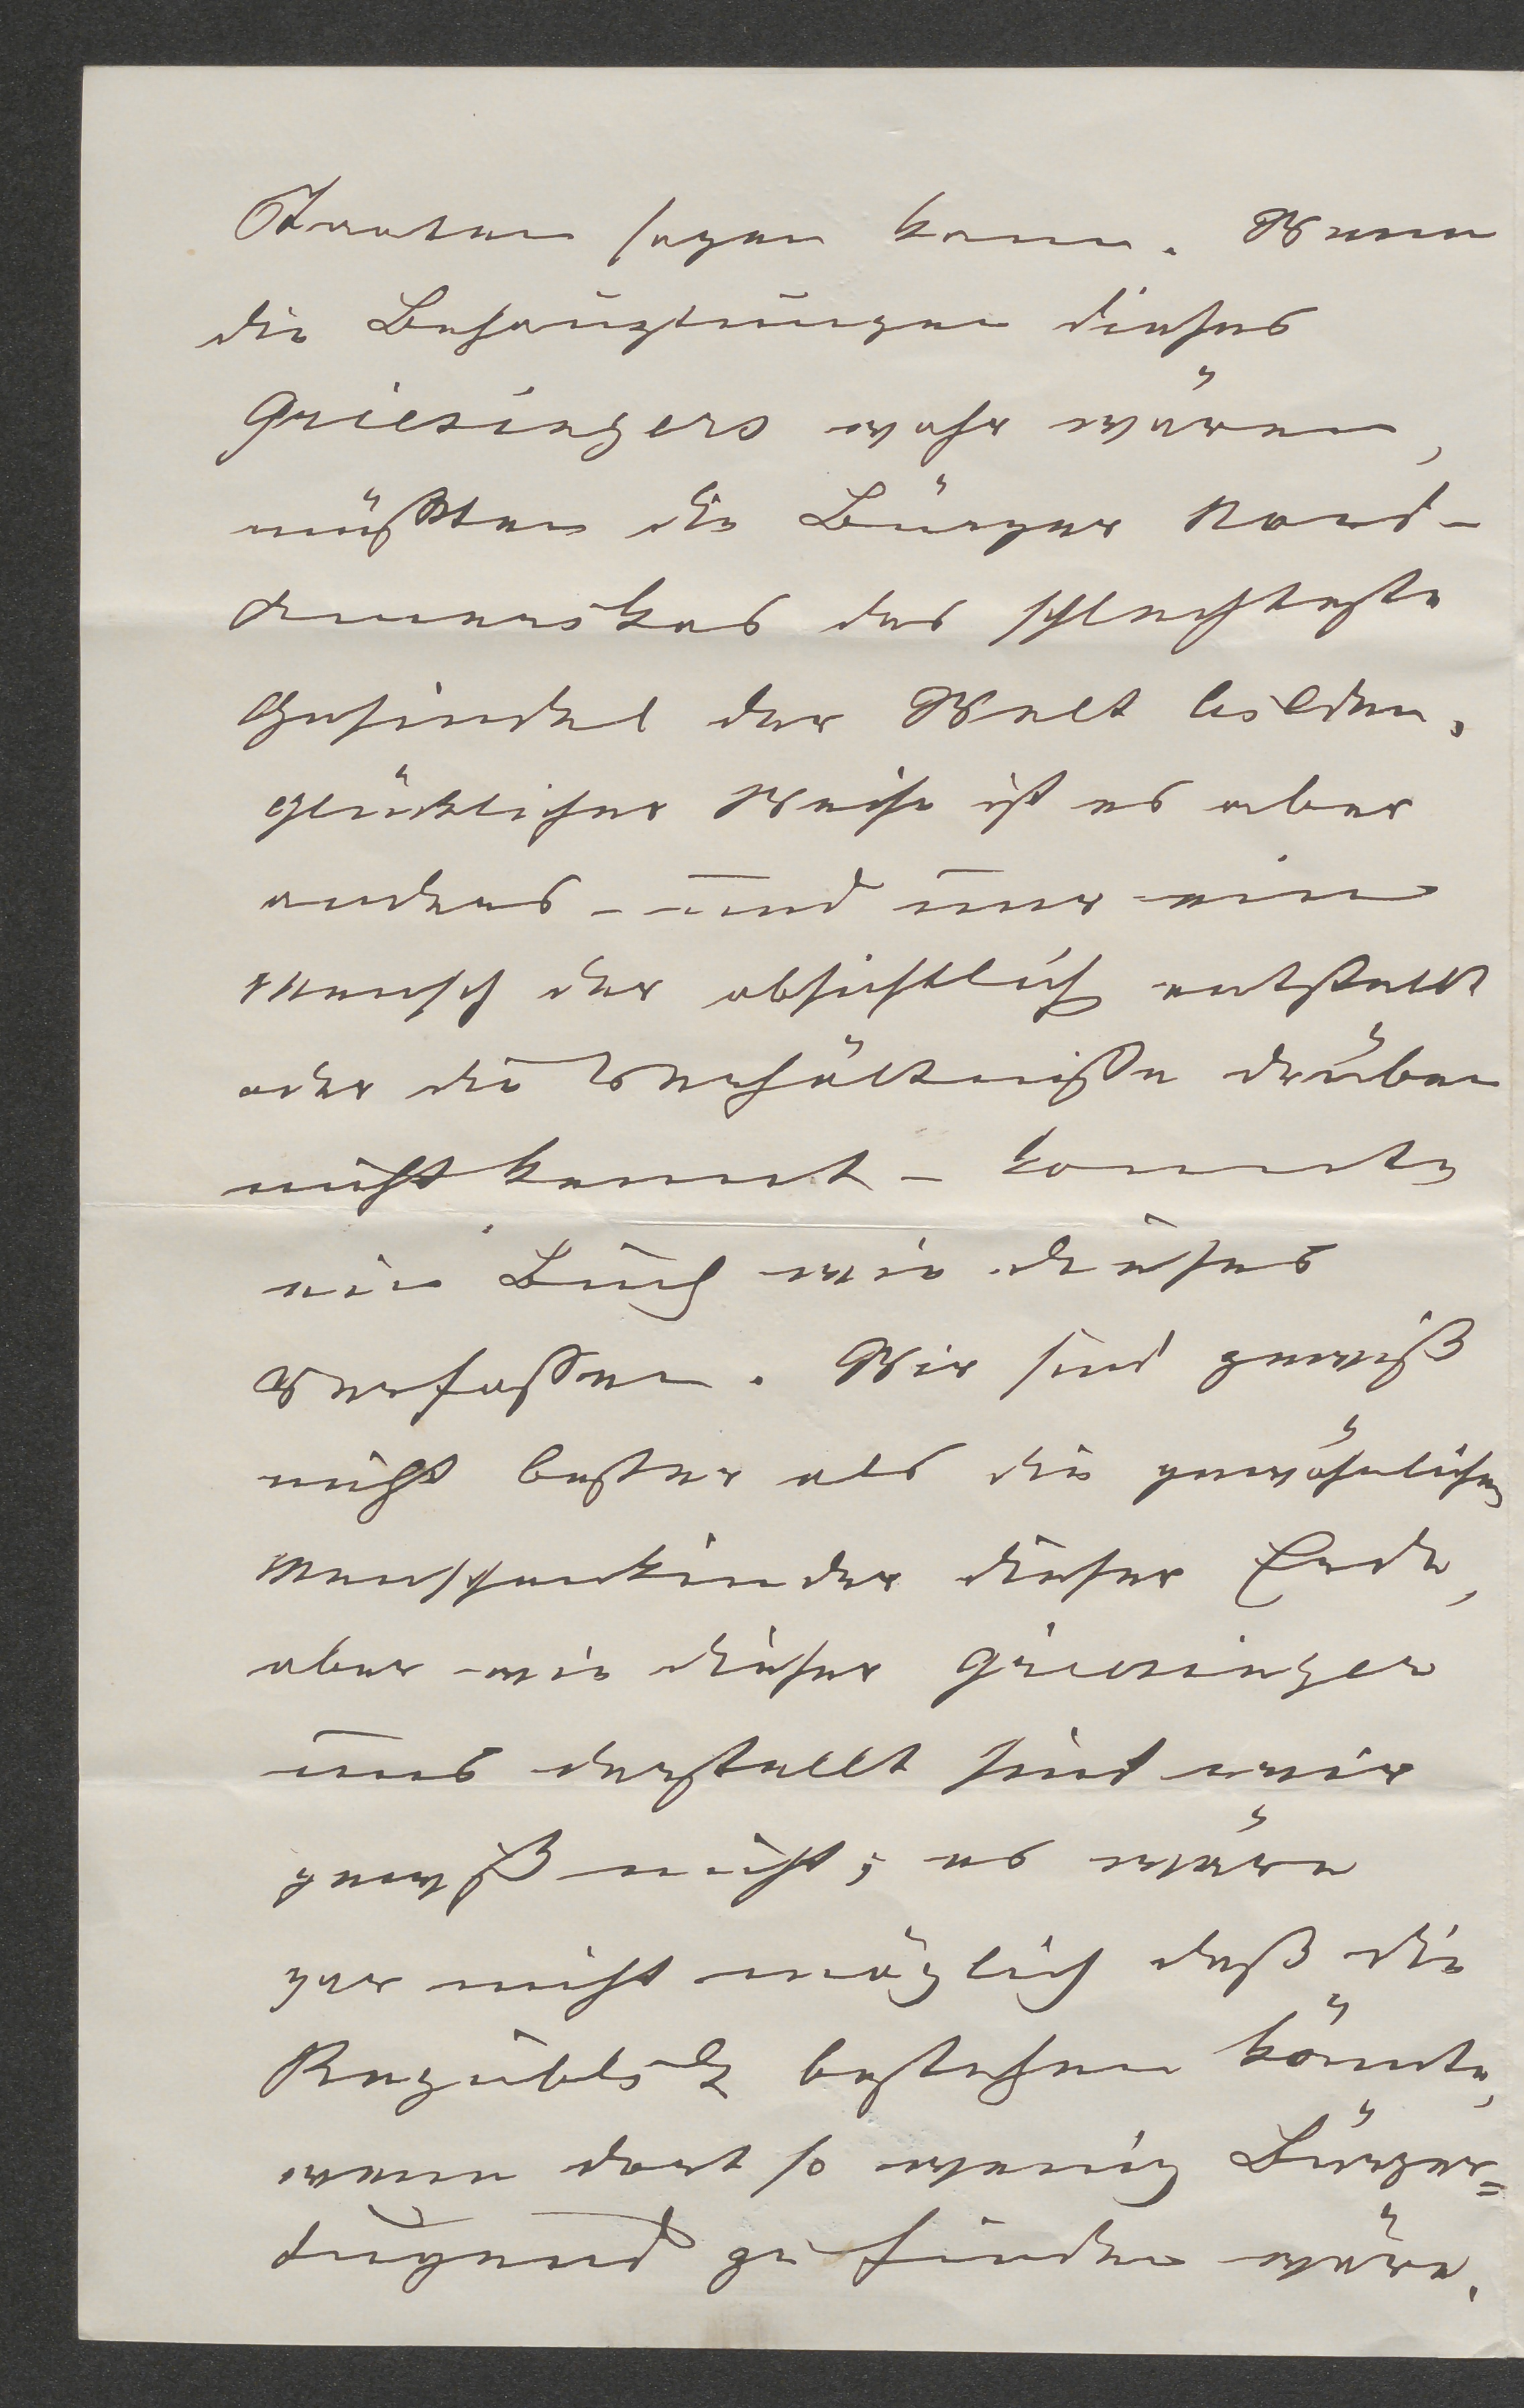 Staaten sagen kann. Wenn
die Behauptungen dieses
Griesingers wahr wären,
müßten die Bürger Nord-
Amerikas das schlechteste
Gesindel der Welt bilden.
glücklicher Weise ist es aber
anders - und nur ein
Mensch der absichtlich entstellt
oder die Verhältniße drüben
nicht kennt - konnte
ein Buch wie dieses
verfaßen. Wir sind gewiß
nicht beßer als die gewöhnlichen
Menschenkinder dieser Erde,
aber wie dieser Griesinger
uns darstellt sind wir
gewiß nicht; es wäre
gar nicht möglich daß die
Republik bestehen könnte,
wenn dort so wenig Bürger=
tugend zu finden wäre.